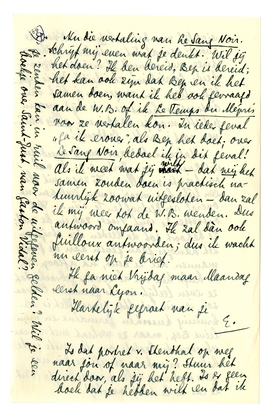 Nu die vertaling van Le Sang Noir.
Schrijf mij even wat je denkt. Wil jij
het doen? Ik ben bereid, Bep is bereid;
het kan ook zijn dat Bep en ik het
samen doen, want ik heb ook gevraagd
aan de W.B. of ik Le Temps du Mépris
voor ze vertalen kon. In ieder geval
"ga ik erover", als Bep het doet, over
Le Sang Noir bedoel ik in dit geval!
Als ik weet wat jij wilt — dat wij het
samen zouden doen is practisch na-
tuurlijk zoowat uitgesloten — dan zal
ik mij weer tot de W.B. wenden. Dus
antwoord omgaand. Ik zal dan ook
Guilloux antwoorden; dus ik wacht
nu eerst op je brief.
Ik ga niet Vrijdag maar Maandag
eerst naar Lyon.
Hartelijk gegroet van je
E.
Is dat portret v. Stendhal op weg
naar jou of naar mij? Stuur het
direct door, als jij het hebt. Is er geen
boek dat je hebben wilt en dat ik
je zenden kan in ruil voor de uitgegeven gelden? Wil je een
boekje over Saint-Just van Gaston Vidal?